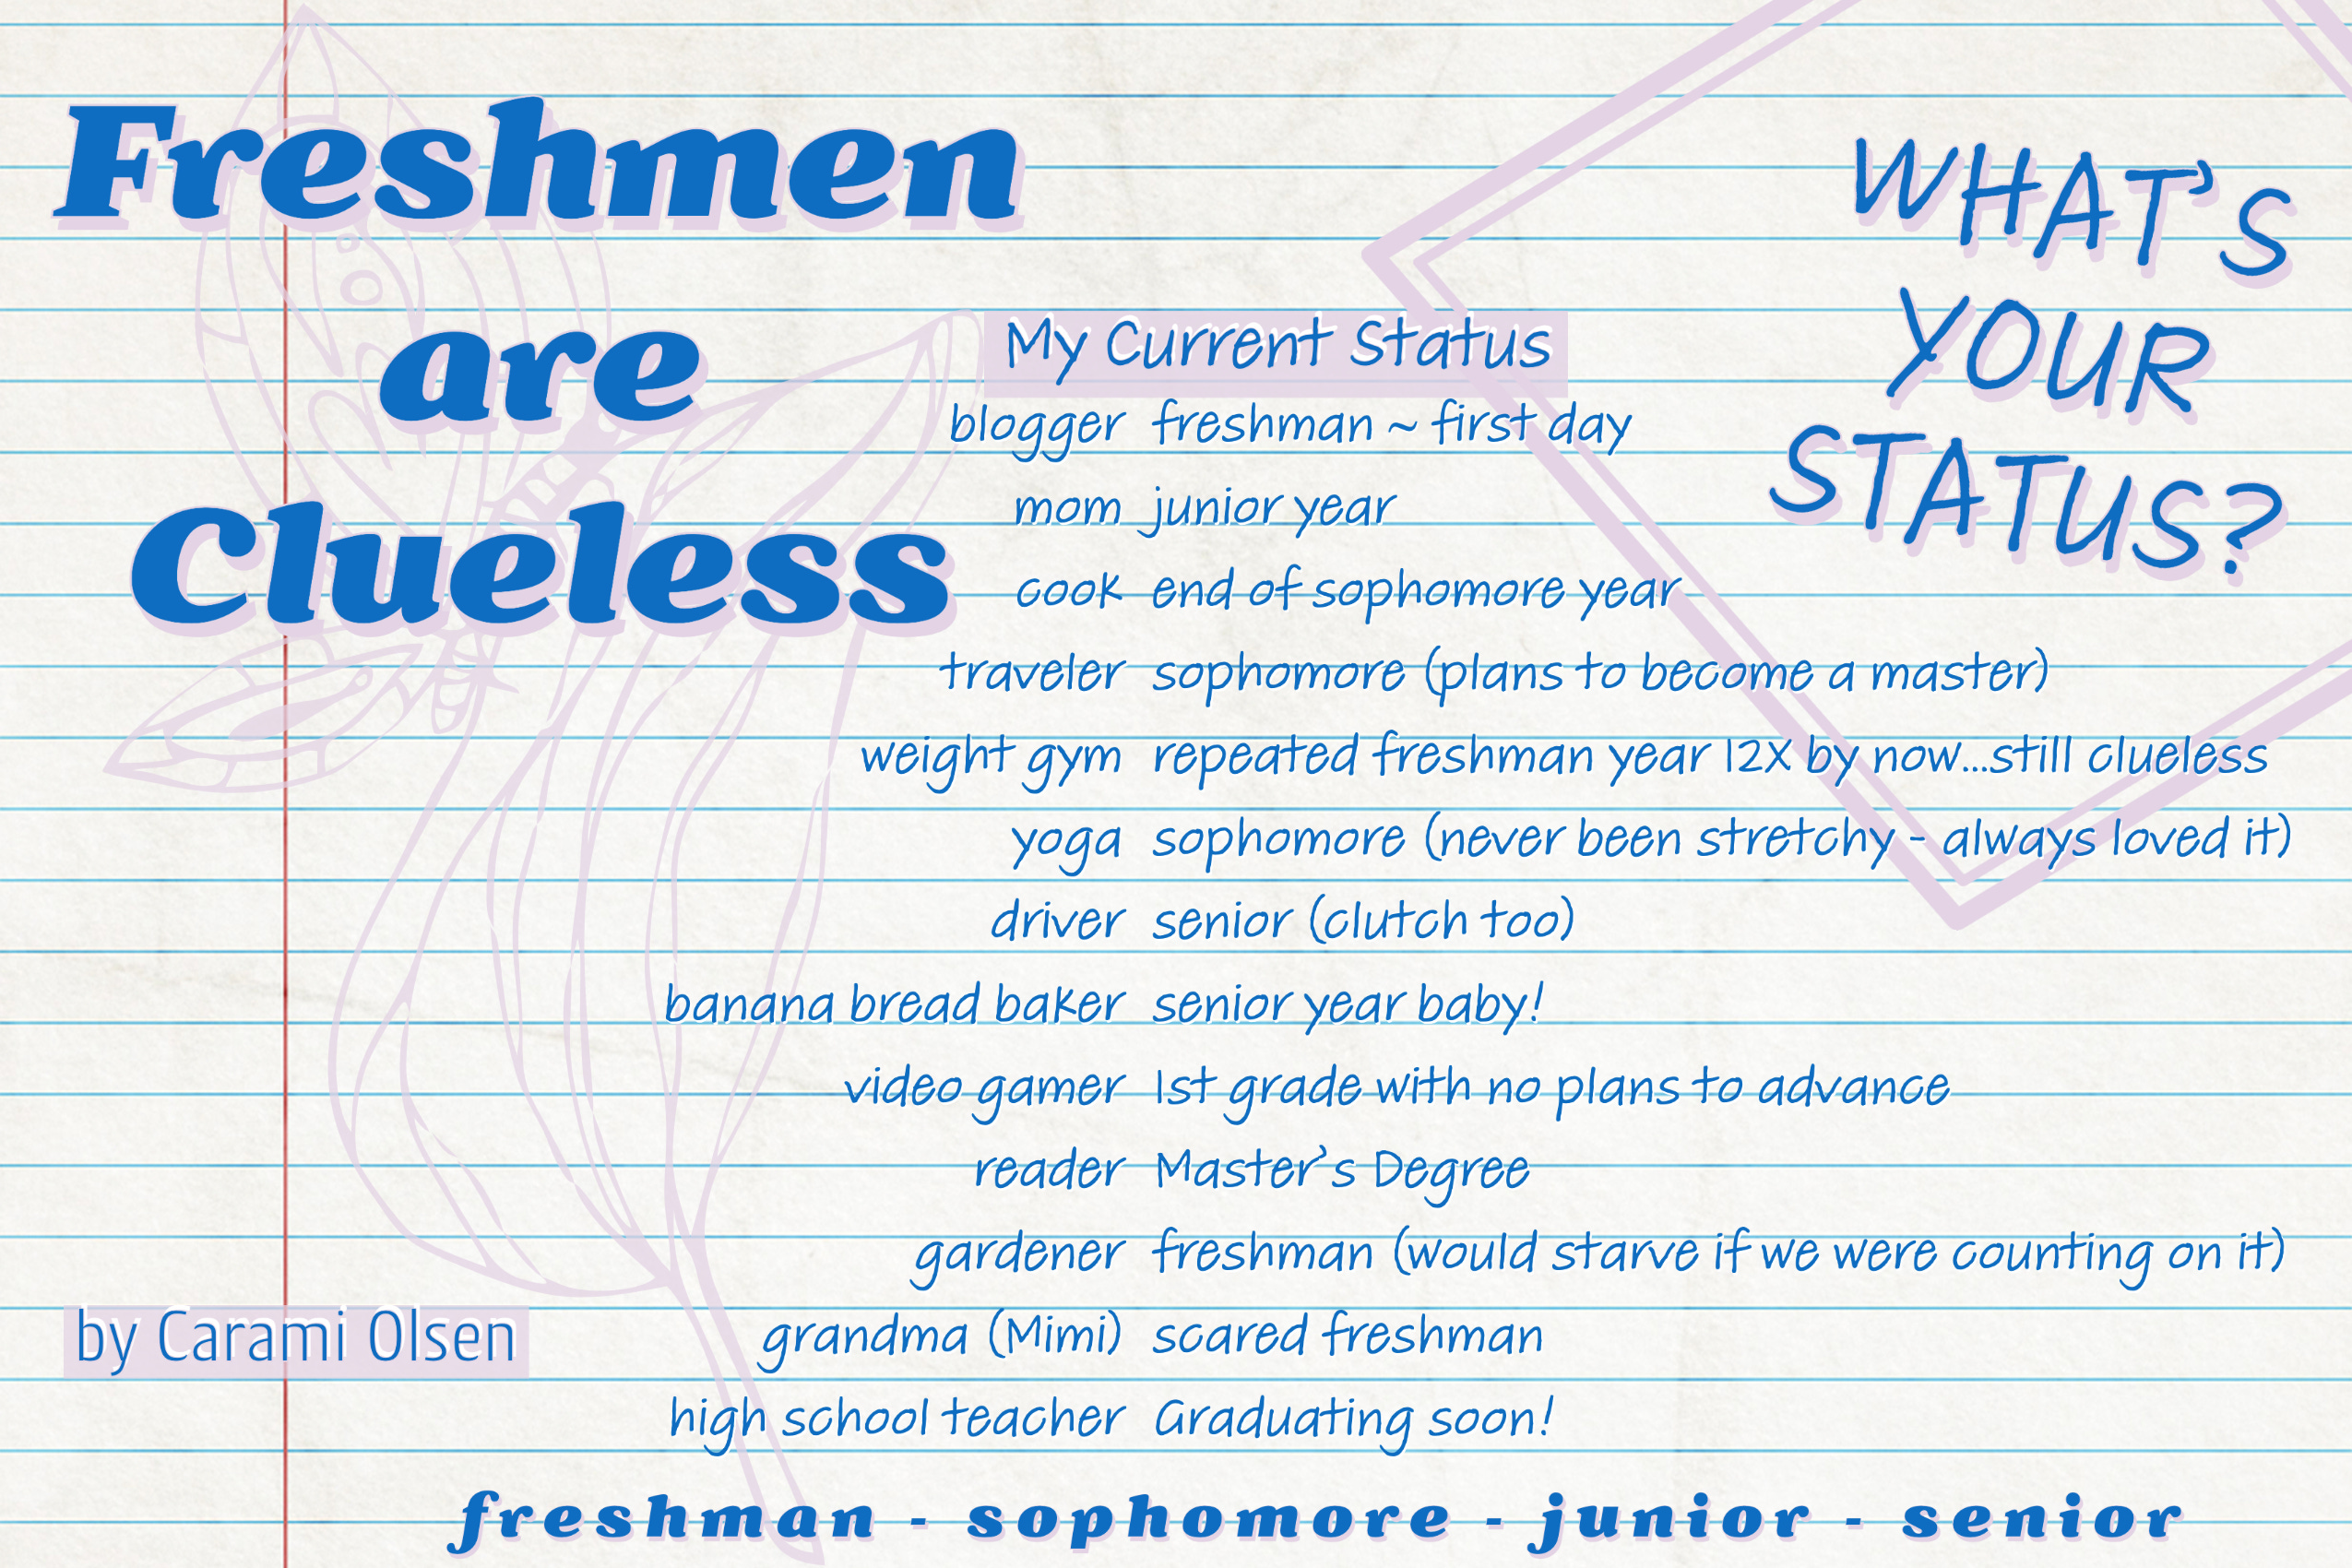 Freshmen
are
Clueless
WHAT'S
YOUR
STATUS?
My Current Status
blogger freshman ~ first day
mom junior year
cook end of sophomore year
traveler sophomore (plans to become a master)
weight gym repeated freshman year 12X by now...still clueless
yoga sophomore (never been stretchy - always loved it)
driver senior (clutch too)
banana bread baker senior year baby!
video gamer 1st grade with no plans to advance
reader Master's Degree
gardener freshman (would starve if we were counting on it)
grandma (Mimi) scared freshman
high school teacher Graduating soon!
by Carami Olsen
freshman - sophomore - junior - senior